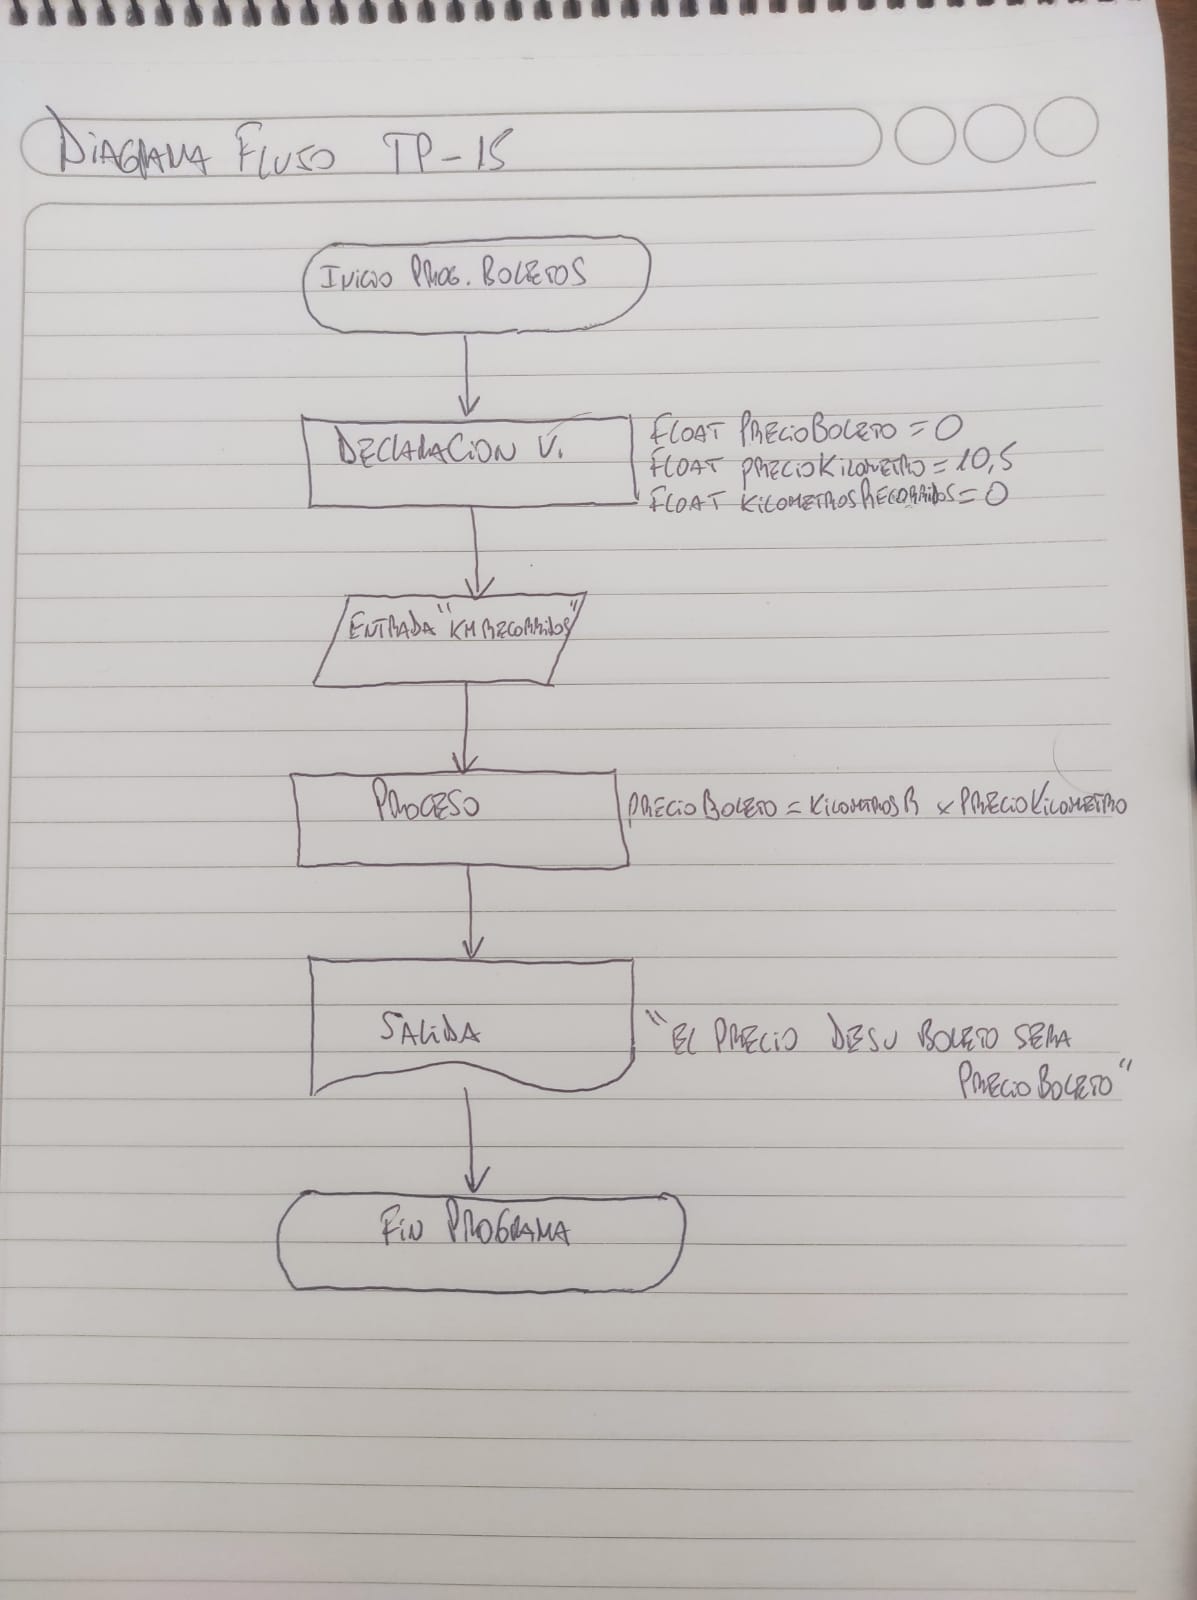 DIAGRAMA FLUJO TP-15
INICIO PROG. BOLETOS
DECLARACION V.
FLOAT PRECIOBOLETO = 0
FLOAT PRECIOKILOMETRO = 10,5
FLOAT KILOMETROSRECORRIDOS = 0
ENTRADA "KM RECORRIDOS"
PROCESO
PRECIOBOLETO = KILOMETROSR x PRECIOKILOMETRO
SALIDA
"EL PRECIO DE SU BOLETO SERA
PRECIOBOLETO"
FIN PROGRAMA